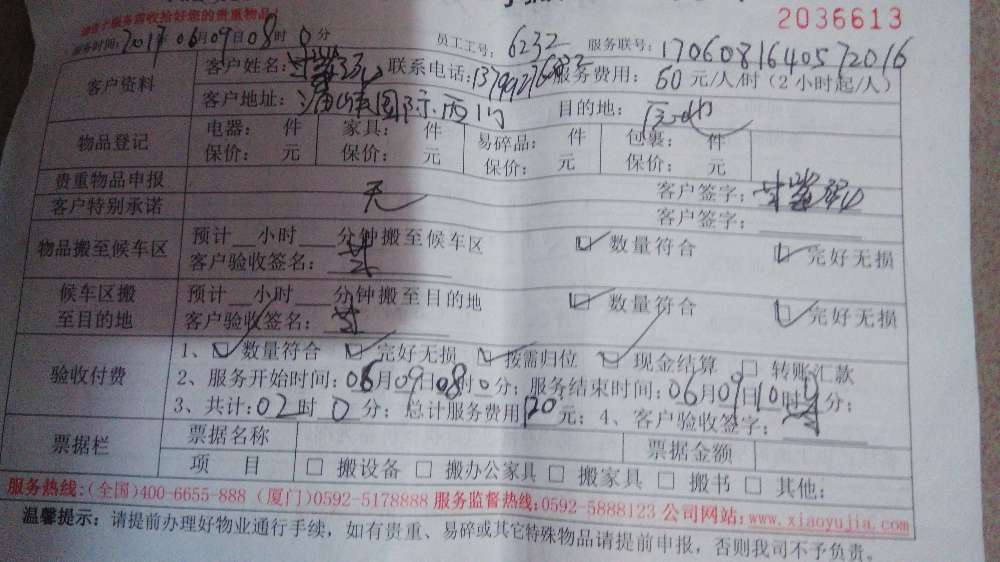 服务验收拾好您的贵重物品!
2036613
服务时间:2017 06月09日08时0分 员工工号:6232 服务联号:1706081640572016
客户资料 客户姓名: 联系电话: 服务费用:60元/人/时(2小时起/人)
客户地址: 国际西门 目的地:
物品登记 电器: 件 家具: 件 易碎品: 件 包裹: 件
保价: 元 保价: 元 保价: 元 保价: 元
贵重物品申报 无 客户签字:
客户特别承诺 客户签字:
物品搬至候车区 预计__小时___分钟搬至候车区 ☑数量符合 ☑完好无损
客户验收签名:
候车区搬至目的地 预计__小时___分钟搬至目的地 ☑数量符合 ☑完好无损
客户验收签名:
验收付费 1、☑数量符合 ☑完好无损 ☑按需归位 ☑现金结算 □转账汇款
2、服务开始时间:06月09日08时0分;服务结束时间:06月09日10时0分;
3、共计:02时0分;总计服务费用120元;4、客户验收签字:
票据栏 票据名称 票据金额
项 目 □搬设备 □搬办公家具 □搬家具 □搬书 □其他:
服务热线:(全国)400-6655-888 (厦门)0592-5178888 服务监督热线:0592-5888123 公司网站:www.xiaoyujia.com
温馨提示:请提前办理好物业通行手续,如有贵重、易碎或其它特殊物品请提前申报,否则我司不予负责。